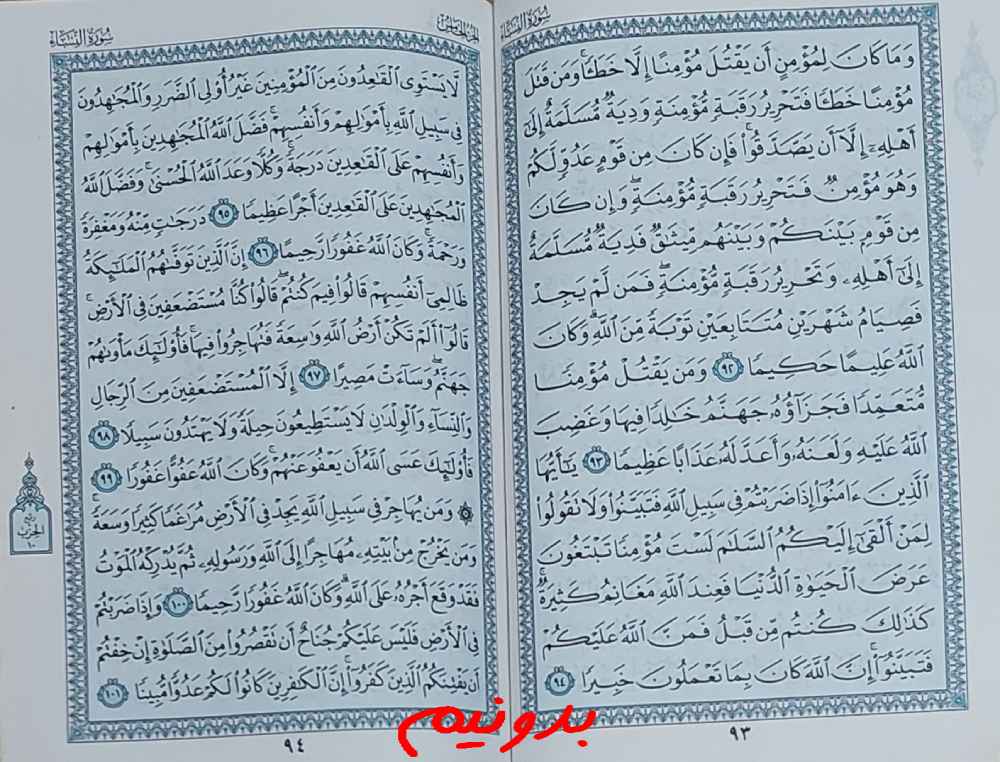 سُورَةُ النِّسَاءِ
وَمَا كَانَ لِمُؤْمِنٍ أَن يَقْتُلَ مُؤْمِنًا إِلَّا خَطَـًٔا ۚ وَمَن قَتَلَ
مُؤْمِنًا خَطَـًٔا فَتَحْرِيرُ رَقَبَةٍ مُّؤْمِنَةٍ وَدِيَةٌ مُّسَلَّمَةٌ إِلَىٰٓ
أَهْلِهِۦٓ إِلَّآ أَن يَصَّدَّقُوا۟ ۚ فَإِن كَانَ مِن قَوْمٍ عَدُوٍّ لَّكُمْ
وَهُوَ مُؤْمِنٌ فَتَحْرِيرُ رَقَبَةٍ مُّؤْمِنَةٍ ۖ وَإِن كَانَ
مِن قَوْمٍۭ بَيْنَكُمْ وَبَيْنَهُم مِّيثَـٰقٌ فَدِيَةٌ مُّسَلَّمَةٌ
إِلَىٰٓ أَهْلِهِۦ وَتَحْرِيرُ رَقَبَةٍ مُّؤْمِنَةٍ ۖ فَمَن لَّمْ يَجِدْ
فَصِيَامُ شَهْرَيْنِ مُتَتَابِعَيْنِ تَوْبَةً مِّنَ ٱللَّهِ ۗ وَكَانَ
ٱللَّهُ عَلِيمًا حَكِيمًا ٩٢ وَمَن يَقْتُلْ مُؤْمِنًا
مُّتَعَمِّدًا فَجَزَآؤُهُۥ جَهَنَّمُ خَـٰلِدًا فِيهَا وَغَضِبَ
ٱللَّهُ عَلَيْهِ وَلَعَنَهُۥ وَأَعَدَّ لَهُۥ عَذَابًا عَظِيمًا ٩٣ يَـٰٓأَيُّهَا
ٱلَّذِينَ ءَامَنُوٓا۟ إِذَا ضَرَبْتُمْ فِى سَبِيلِ ٱللَّهِ فَتَبَيَّنُوا۟ وَلَا تَقُولُوا۟
لِمَنْ أَلْقَىٰٓ إِلَيْكُمُ ٱلسَّلَـٰمَ لَسْتَ مُؤْمِنًا تَبْتَغُونَ
عَرَضَ ٱلْحَيَوٰةِ ٱلدُّنْيَا فَعِندَ ٱللَّهِ مَغَانِمُ كَثِيرَةٌ ۚ
كَذَٰلِكَ كُنتُم مِّن قَبْلُ فَمَنَّ ٱللَّهُ عَلَيْكُمْ
فَتَبَيَّنُوٓا۟ ۚ إِنَّ ٱللَّهَ كَانَ بِمَا تَعْمَلُونَ خَبِيرًا ٩٤
٩٣
الجزء الخامس
سُورَةُ النِّسَاءِ
لَّا يَسْتَوِى ٱلْقَـٰعِدُونَ مِنَ ٱلْمُؤْمِنِينَ غَيْرُ أُو۟لِى ٱلضَّرَرِ وَٱلْمُجَـٰهِدُونَ
فِى سَبِيلِ ٱللَّهِ بِأَمْوَٰلِهِمْ وَأَنفُسِهِمْ ۚ فَضَّلَ ٱللَّهُ ٱلْمُجَـٰهِدِينَ بِأَمْوَٰلِهِمْ
وَأَنفُسِهِمْ عَلَى ٱلْقَـٰعِدِينَ دَرَجَةً ۚ وَكُلًّا وَعَدَ ٱللَّهُ ٱلْحُسْنَىٰ ۚ وَفَضَّلَ ٱللَّهُ
ٱلْمُجَـٰهِدِينَ عَلَى ٱلْقَـٰعِدِينَ أَجْرًا عَظِيمًا ٩٥ دَرَجَـٰتٍ مِّنْهُ وَمَغْفِرَةً
وَرَحْمَةً ۚ وَكَانَ ٱللَّهُ غَفُورًا رَّحِيمًا ٩٦ إِنَّ ٱلَّذِينَ تَوَفَّىٰهُمُ ٱلْمَلَـٰٓئِكَةُ
ظَالِمِىٓ أَنفُسِهِمْ قَالُوا۟ فِيمَ كُنتُمْ ۖ قَالُوا۟ كُنَّا مُسْتَضْعَفِينَ فِى ٱلْأَرْضِ ۚ
قَالُوٓا۟ أَلَمْ تَكُنْ أَرْضُ ٱللَّهِ وَٰسِعَةً فَتُهَاجِرُوا۟ فِيهَا ۚ فَأُو۟لَـٰٓئِكَ مَأْوَىٰهُمْ
جَهَنَّمُ ۖ وَسَآءَتْ مَصِيرًا ٩٧ إِلَّا ٱلْمُسْتَضْعَفِينَ مِنَ ٱلرِّجَالِ
وَٱلنِّسَآءِ وَٱلْوِلْدَٰنِ لَا يَسْتَطِيعُونَ حِيلَةً وَلَا يَهْتَدُونَ سَبِيلًا ٩٨
فَأُو۟لَـٰٓئِكَ عَسَى ٱللَّهُ أَن يَعْفُوَ عَنْهُمْ ۚ وَكَانَ ٱللَّهُ عَفُوًّا غَفُورًا ٩٩
۞ وَمَن يُهَاجِرْ فِى سَبِيلِ ٱللَّهِ يَجِدْ فِى ٱلْأَرْضِ مُرَٰغَمًا كَثِيرًا وَسَعَةً ۚ
وَمَن يَخْرُجْ مِنۢ بَيْتِهِۦ مُهَاجِرًا إِلَى ٱللَّهِ وَرَسُولِهِۦ ثُمَّ يُدْرِكْهُ ٱلْمَوْتُ
فَقَدْ وَقَعَ أَجْرُهُۥ عَلَى ٱللَّهِ ۗ وَكَانَ ٱللَّهُ غَفُورًا رَّحِيمًا ١٠٠ وَإِذَا ضَرَبْتُمْ
فِى ٱلْأَرْضِ فَلَيْسَ عَلَيْكُمْ جُنَاحٌ أَن تَقْصُرُوا۟ مِنَ ٱلصَّلَوٰةِ إِنْ خِفْتُمْ
أَن يَفْتِنَكُمُ ٱلَّذِينَ كَفَرُوٓا۟ ۚ إِنَّ ٱلْكَـٰفِرِينَ كَانُوا۟ لَكُمْ عَدُوًّا مُّبِينًا ١٠١
ربع
الحزب
١٠
٩٤
بدونیم